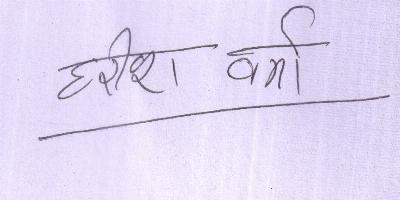 हरीश वर्मा